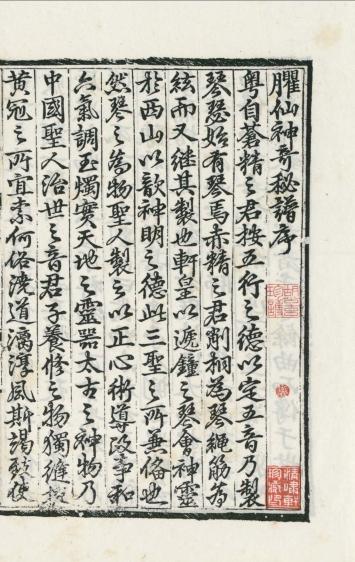 臞仙神奇秘譜序
粤自蒼精之君按五行之德以定五音乃製
琴瑟始有琴焉赤精之君削桐為琴繩絲為
絃而又継其製也軒皇以遞鐘之琴會神靈
於西山以歆神明之德此三聖之所無倫也
然琴之為物聖人製之以正心術導政事和
六氣調玉燭實天地之靈器太古之神物乃
中國聖人治世之音君子養修之物獨縫掖
黃冠之所宜素何俗澆道漓淳風斯竭致使